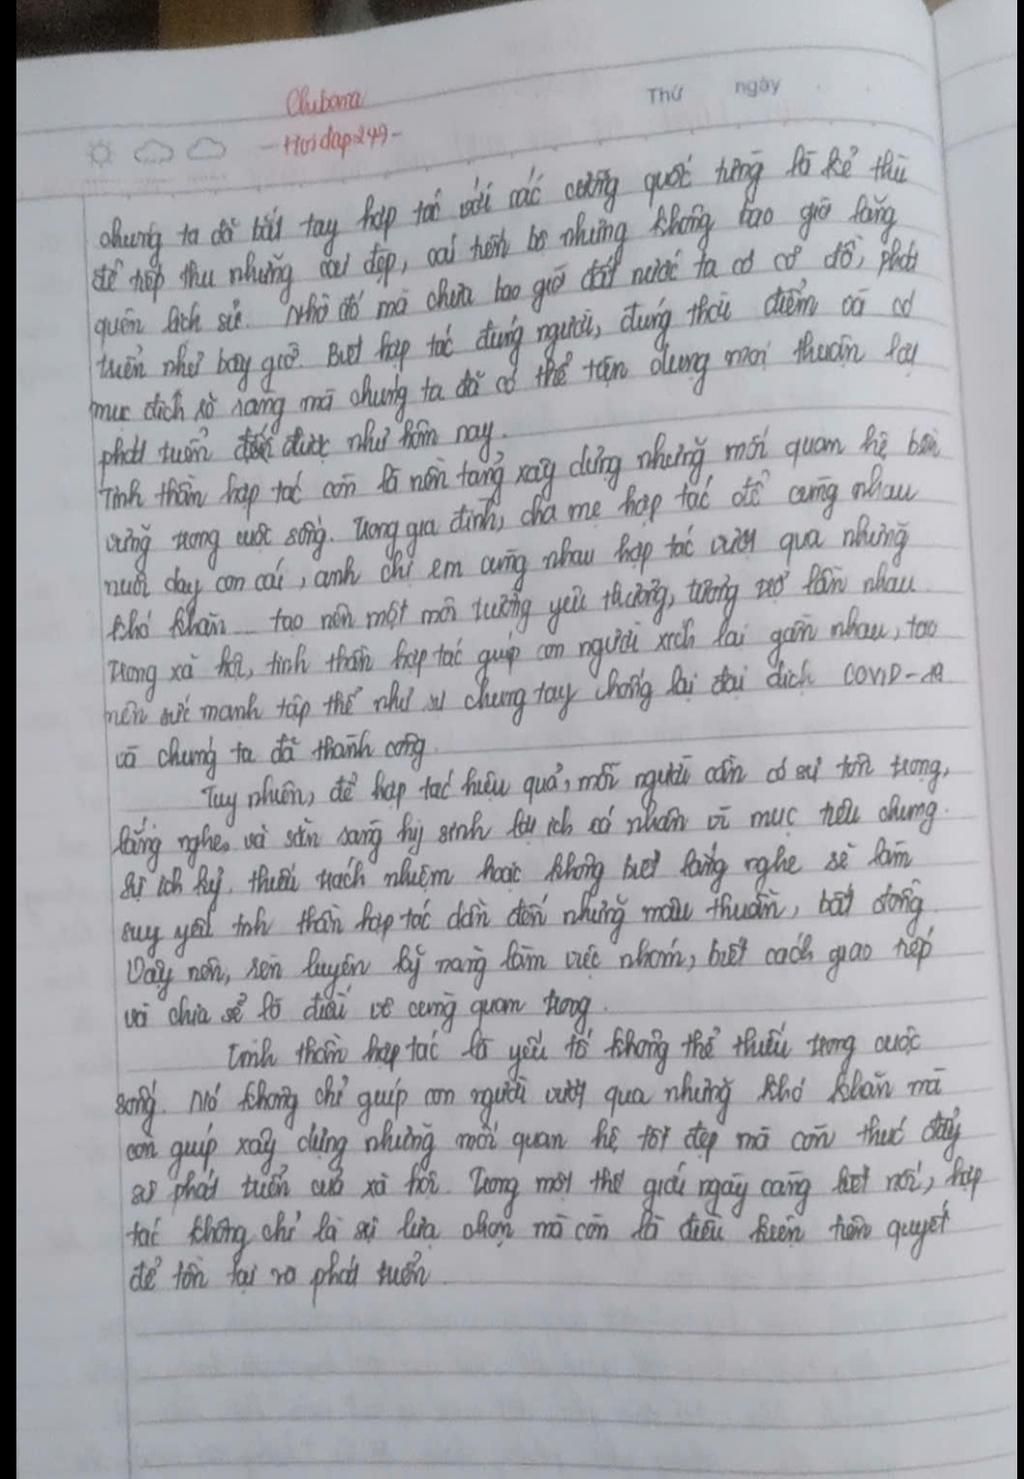 Thứ ngày
Chibana
-Hoidap249-
chúng ta đã bắt tay hợp tác với các cường quốc từng là kẻ thù
để tiếp thu những cái đẹp, cái tiến bộ nhưng không bao giờ lãng
quên lịch sử. Nhờ đó mà chưa bao giờ đất nước ta có cơ đồ, phát
triển như bây giờ. Biết hợp tác đúng người, đúng thời điểm và có
mục đích rõ ràng mà chúng ta đã có thể tận dụng mọi thuận lợi
phát triển được như hôm nay.
Tinh thần hợp tác còn là nền tảng xây dựng những mối quan hệ bền
vững trong cuộc sống. Trong gia đình, cha mẹ hợp tác để cùng nhau
nuôi dạy con cái, anh chị em cùng nhau hợp tác vượt qua những
khó khăn... tạo nên một môi trường yêu thương, tương trợ lẫn nhau.
Trong xã hội, tinh thần hợp tác giúp con người xích lại gần nhau, tạo
nên sức mạnh tập thể như sự chung tay chống lại đại dịch COVID-19
và chúng ta đã thành công.
Tuy nhiên, để hợp tác hiệu quả, mỗi người cần có sự tôn trọng,
lắng nghe và sẵn sàng hy sinh lợi ích cá nhân vì mục tiêu chung.
Sự ích kỷ, thiếu trách nhiệm hoặc không biết lắng nghe sẽ làm
suy yếu tinh thần hợp tác dẫn đến những mâu thuẫn, bất đồng.
Vậy nên, rèn luyện kỹ năng làm việc nhóm, biết cách giao tiếp
và chia sẻ là điều vô cùng quan trọng.
Tinh thần hợp tác là yếu tố không thể thiếu trong cuộc
sống. Nó không chỉ giúp con người vượt qua những khó khăn mà
còn giúp xây dựng những mối quan hệ tốt đẹp mà còn thúc đẩy
sự phát triển của xã hội. Trong một thế giới ngày càng kết nối, hợp
tác không chỉ là sự lựa chọn mà còn là điều kiện tiên quyết
để tồn tại và phát triển.